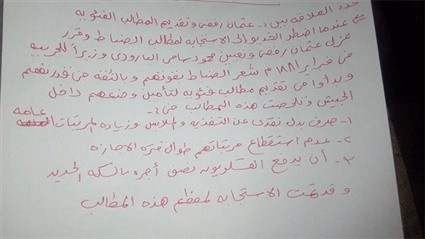 حدد العلاقه بين: عثمان رفقى وتقديم المطالب الفئويه
ج عندما اضطر الخديو الى الاستجابه لمطالب الضباط وقرر
عزل عثمان رفقى وتعيين محمود سامى البارودى وزيراً للحربيه
من فبراير ١٨٨١ م شعر الضباط بقوتهم وبالثقه من قدرتهم
وبدأوا من تقديم مطالب فئويه لتأمين وضعهم داخل
الجيش وتلخصت هذه المطالب من:-
١- صرف بدل نقدى عن التغذيه والملابس وزياده المرتبات عامه
٢- عدم استقطاع مرتباتهم طوال فتره الاجازه
٣- أن يدفع العسكريون نصف أجره بالسكه الحديد
و قد تمت الاستجابه لمعظم هذه المطالب